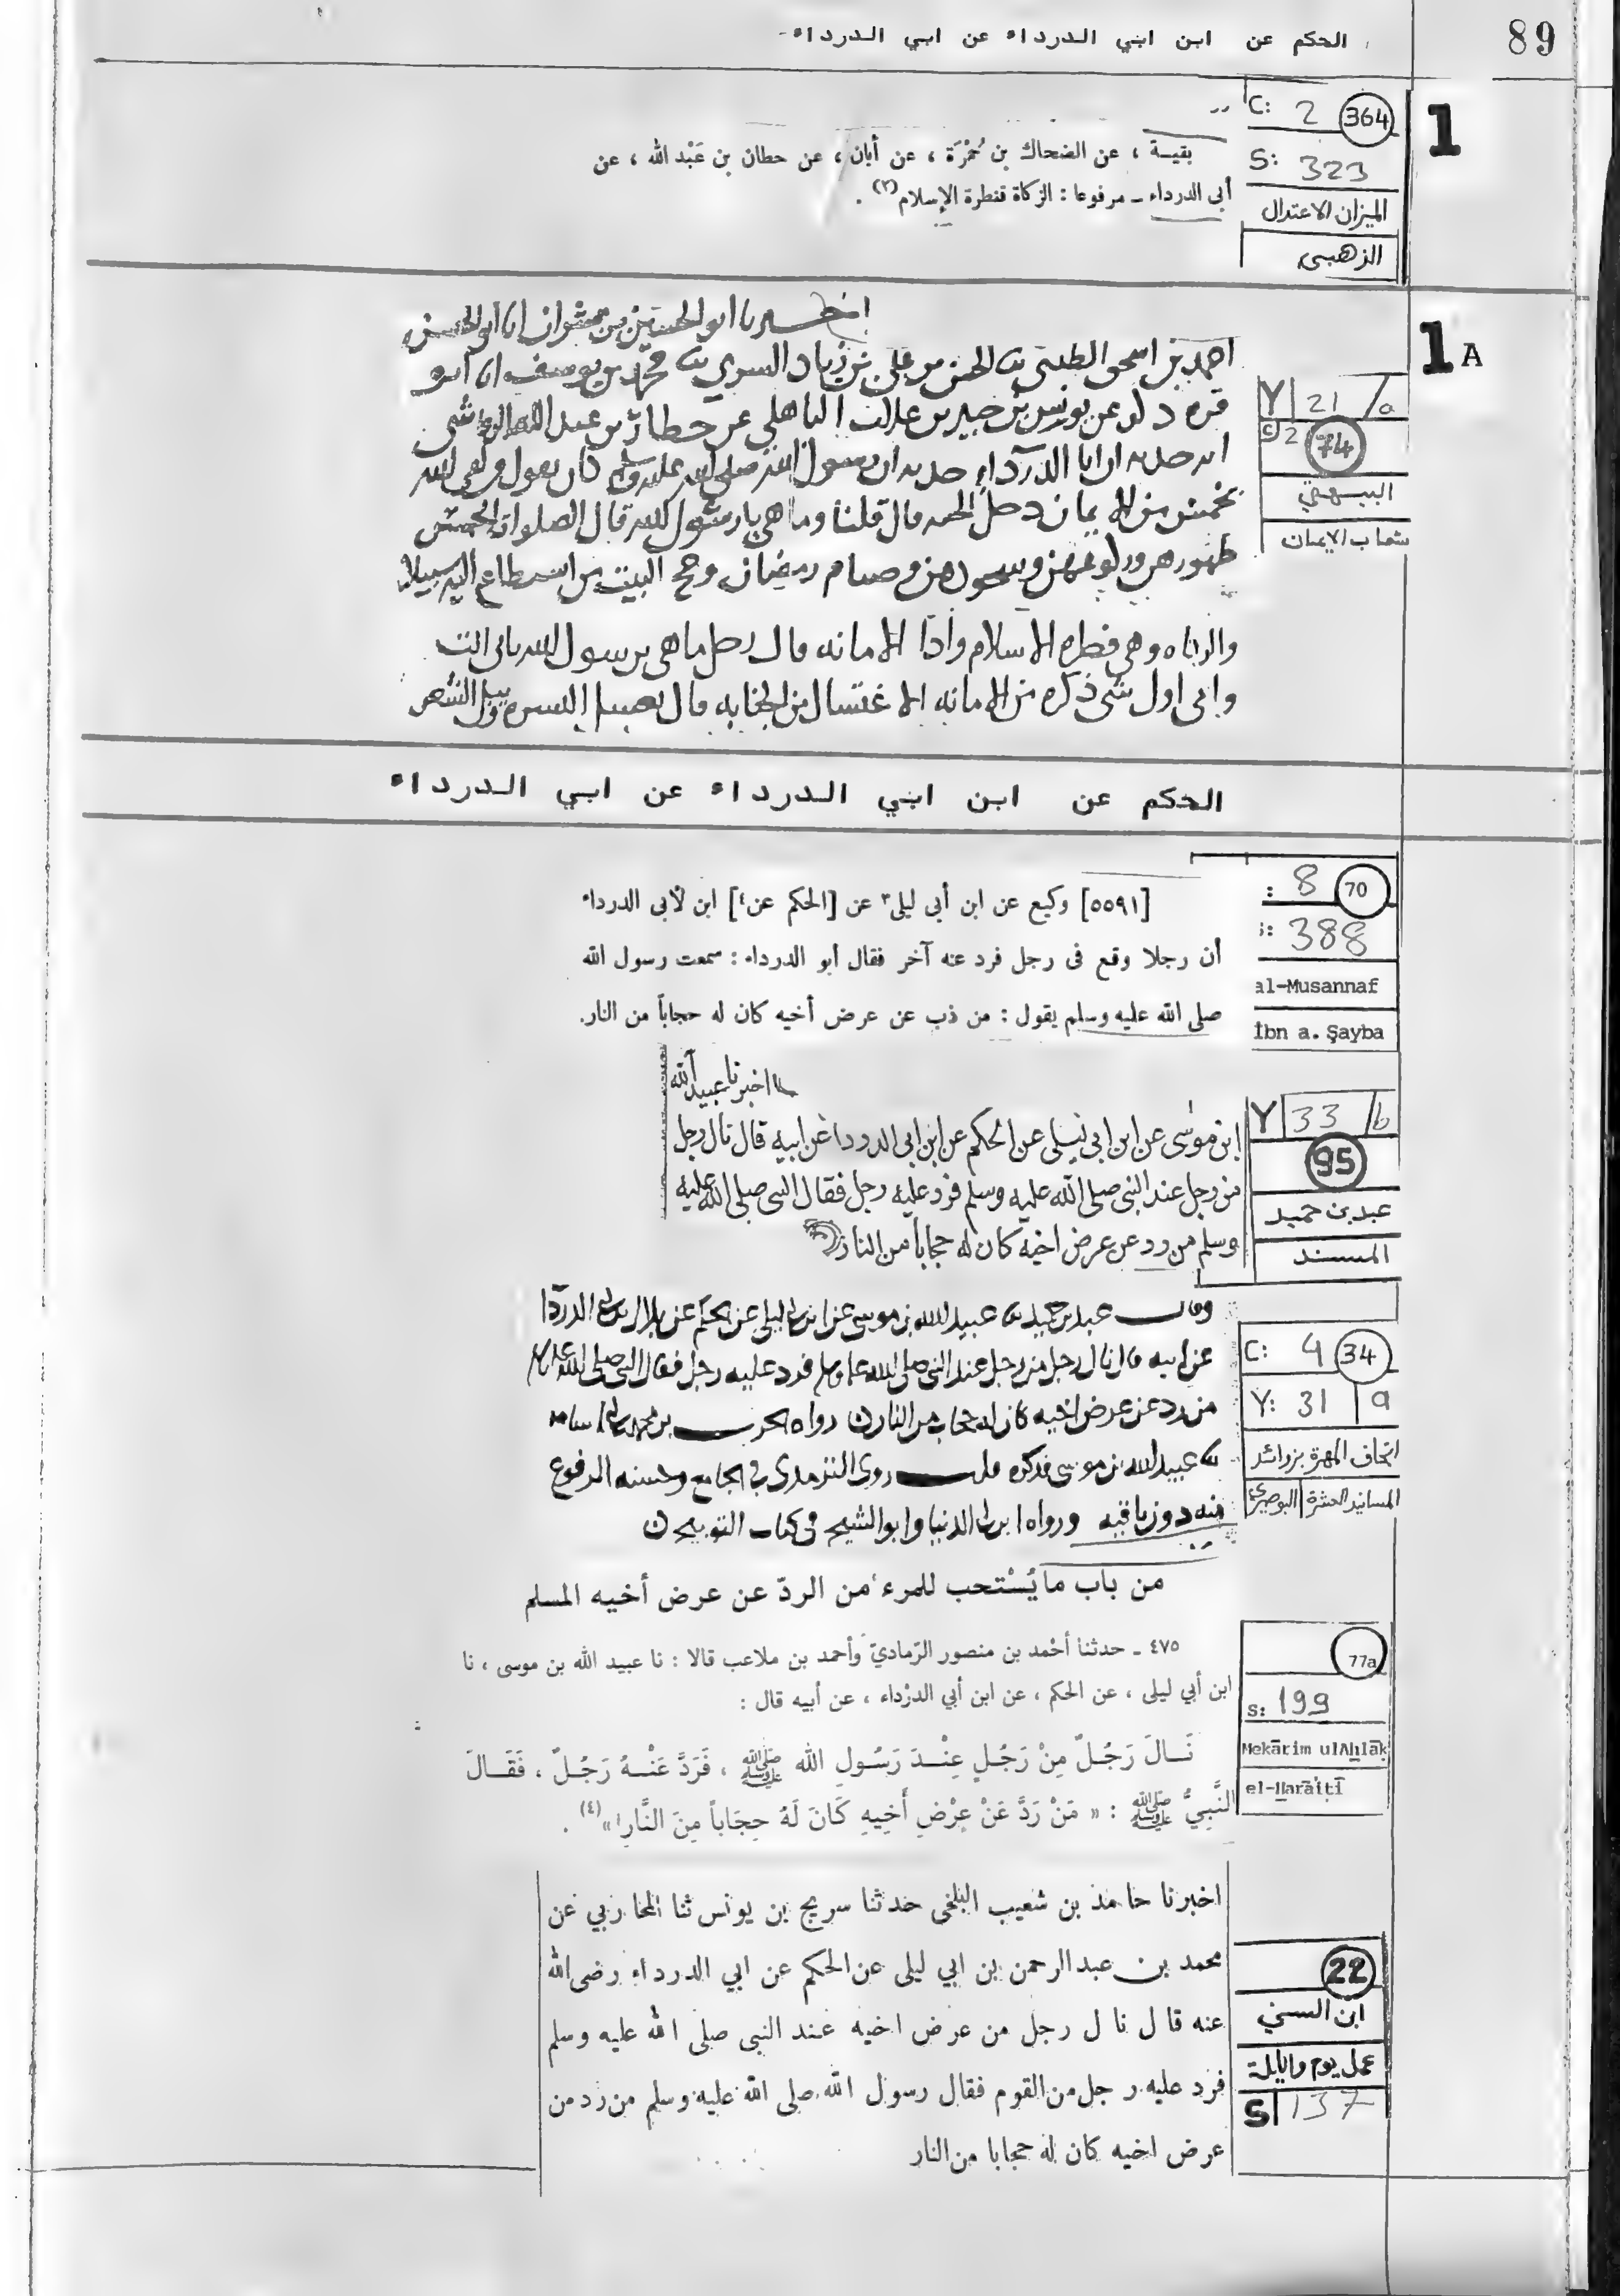 89
الحكم عن ابن ابني الدرداء عن ابي الدرداء
1
C: 2 364
S: 323
الميزان الاعتدال
الزهبي
بقية ، عن الضحاك بن حُمْرَة ، عن أبان ، عن حطان بن عَبْد الله ، عن
أبى الدرداء ــ مرفوعا : الزكاة قنطرة الإسلام (٢) .
1A
Y 21 /a
C 2 74
البيهقي
شعاب الايمان
احمد بن اسحق الطيبى الحسن بن على بن زياد السري محمد بن يوسف انا ابو
قره عن يونس بن جبير بن علاق الباهلي عن حطان بن عبد الله الرقاشي
ان ابا الدرداء ان رسول الله صلى الله عليه وسلم كان يقول
بخمس من الايمان دخل الجنه قال قلنا وما هي يا رسول الله قال الصلوات الخمس
وصيام رمضان وحج البيت من استطاع اليه سبيلا
وهي فطره الاسلام واذا الامانه قال رجل ما هي يرسول الله
اول شي ذكره من الامانه الاغتسال من الجنابه قال
الحكم عن ابن ابني الدرداء عن ابي الدرداء
: 8 70
: 388
al-Musannaf
İbn a. Şayba
[٥٥٩١] وكيع عن ابن أبى ليلى ٣ عن [الحكم عن ٤] ابن لأبى الدرداء
أن رجلا وقع فى رجل فرد عنه آخر فقال أبو الدرداء : سمعت رسول الله
صلى الله عليه وسلم يقول : من ذب عن عرض أخيه كان له حجاباً من النار.
Y 33 /b
95
عبد بن حميد
المسند
اخبرنا عبيد الله
ابن موسى عن ابن ابي ليلى عن الحكم عن ابن ابي الدرداء عن ابيه قال نال رجل
من رجل عند النبى صلى الله عليه وسلم فرد عليه رجل فقال النبى صلى الله عليه
وسلم من رد عن عرض اخيه كان له حجابا من النار
C: 4 34
Y: 31 a
اتحاف المهرة بزوائد
المسانيد العشرة البوصيري
وقال عبد بن حميد ثنا عبيد الله بن موسى عن ابن ابي ليلى عن الحكم عن بلال بن ابي الدردا
عن ابيه قال نال رجل من رجل عند النبى صلى الله عليه وسلم فرد عليه رجل فقال النبى صلى الله عليه وسلم
من رد عن عرض اخيه كان له حجاب من النار رواه الحرث بن محمد بن ابي اسامه
ثنا عبيد الله بن موسى فذكره قلت روى الترمذى في الجامع وحسنه المرفوع
منه دون باقيه ورواه ابن ابي الدنيا وابو الشيخ في كتاب التوبيخ
من باب ما يُسْتحب للمرء من الردّ عن عرض أخيه المسلم
77a
S: 199
Mekārim ulAḫlāḳ
el-Ḫarā'iṭī
٤٧٥ ــ حدثنا أحْمد بن منصور الرّماديّ وأحمد بن ملاعب قالا : نا عبيد الله بن موسى ، نا
ابن أبي ليلى ، عن الحكم ، عن ابن أبي الدرْداء ، عن أبيه قال :
نَــالَ رَجُـلٌ مِنْ رَجُلٍ عِنْـدَ رَسُولِ الله ﷺ ، فَرَدَّ عَنْـهُ رَجُـلٌ ، فَقَـالَ
النَّبِيُّ ﷺ : « مَنْ رَدَّ عَنْ عِرْضِ أَخِيهِ كَانَ لَهُ حِجَاباً مِنَ النَّارِ » (٤) .
22
ابن السني
عمل يوم والليلة
S 137
اخبرنا حامد بن شعيب البلخى حدثنا سريج بن يونس ثنا المحاربي عن
محمد بن عبد الرحمن بن ابي ليلى عن الحكم عن ابي الدرداء رضى الله
عنه قال نال رجل من عرض اخيه عند النبى صلى الله عليه وسلم
فرد عليه رجل من القوم فقال رسول الله صلى الله عليه وسلم من رد من
عرض اخيه كان له حجابا من النار